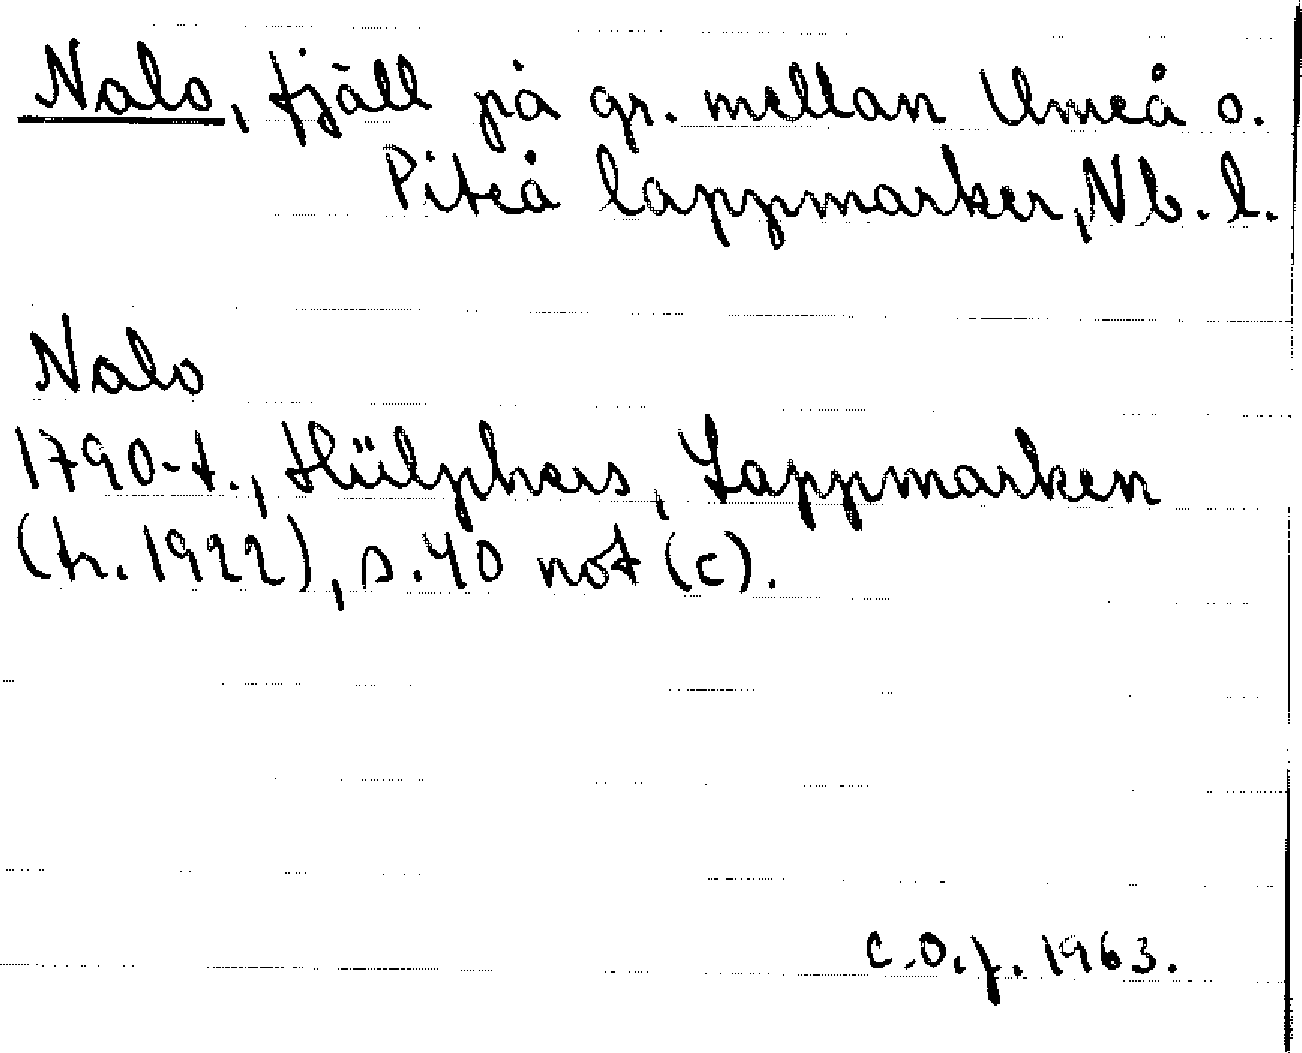 Nalo, fjäll på gr. mellan Umeå o.
Piteå lappmarker, Nb. l.
Nalo
1790-t., Hülphers, Lappmarken
(tr. 1922), s. 40 not (c).
C.O.f. 1963.